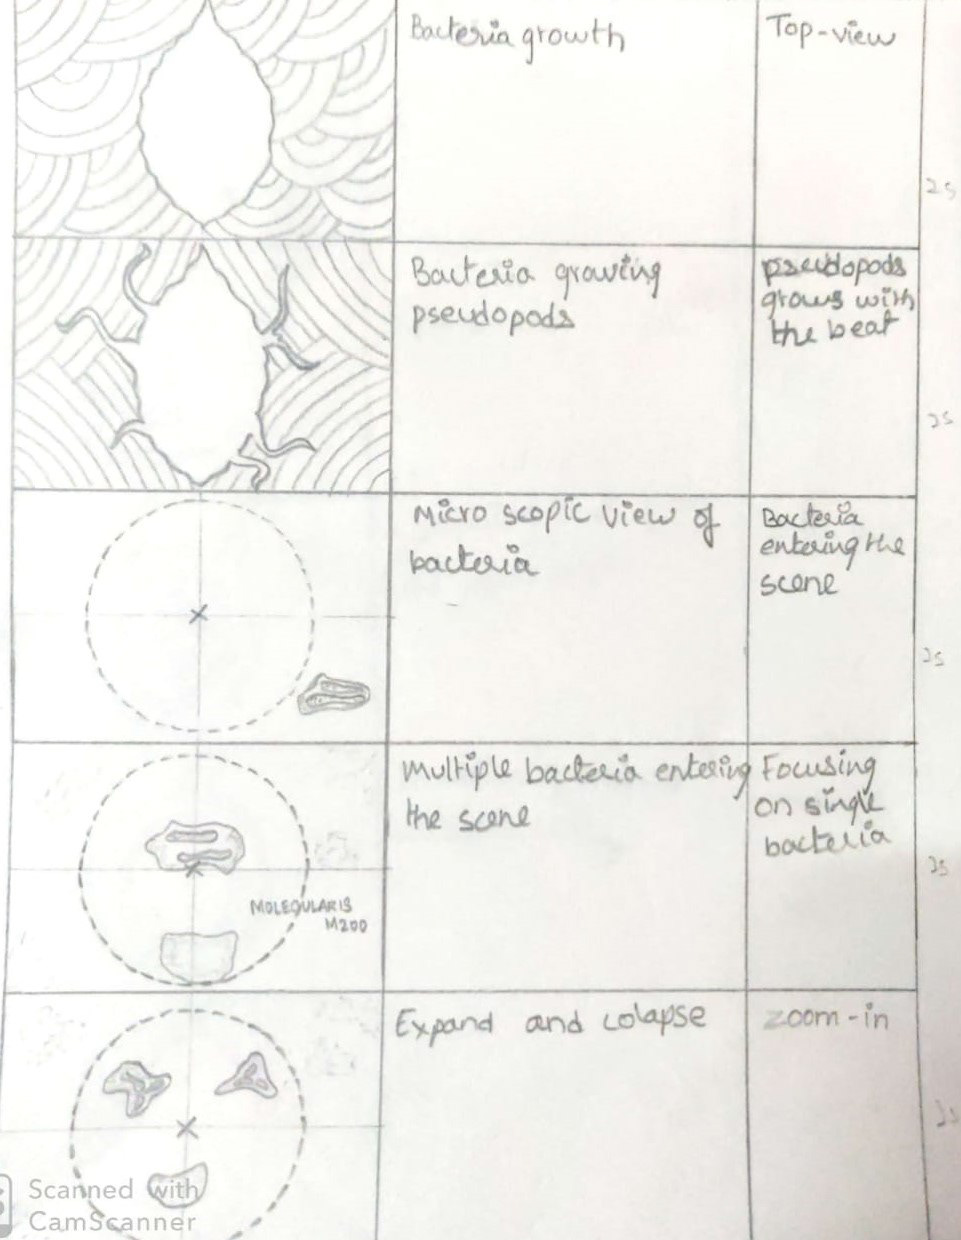 Bacteria growth
Top-view
2s
Bacteria growing
pseudopods
pseudopods
grows with
the beat
2s
Micro scopic view of
bacteria
Bacteria
entering the
scene
Multiple bacteria entering
the scene
Focusing
on single
bacteria
MOLEQULARIS
M200
Expand and colapse
zoom-in
Scanned with
CamScanner